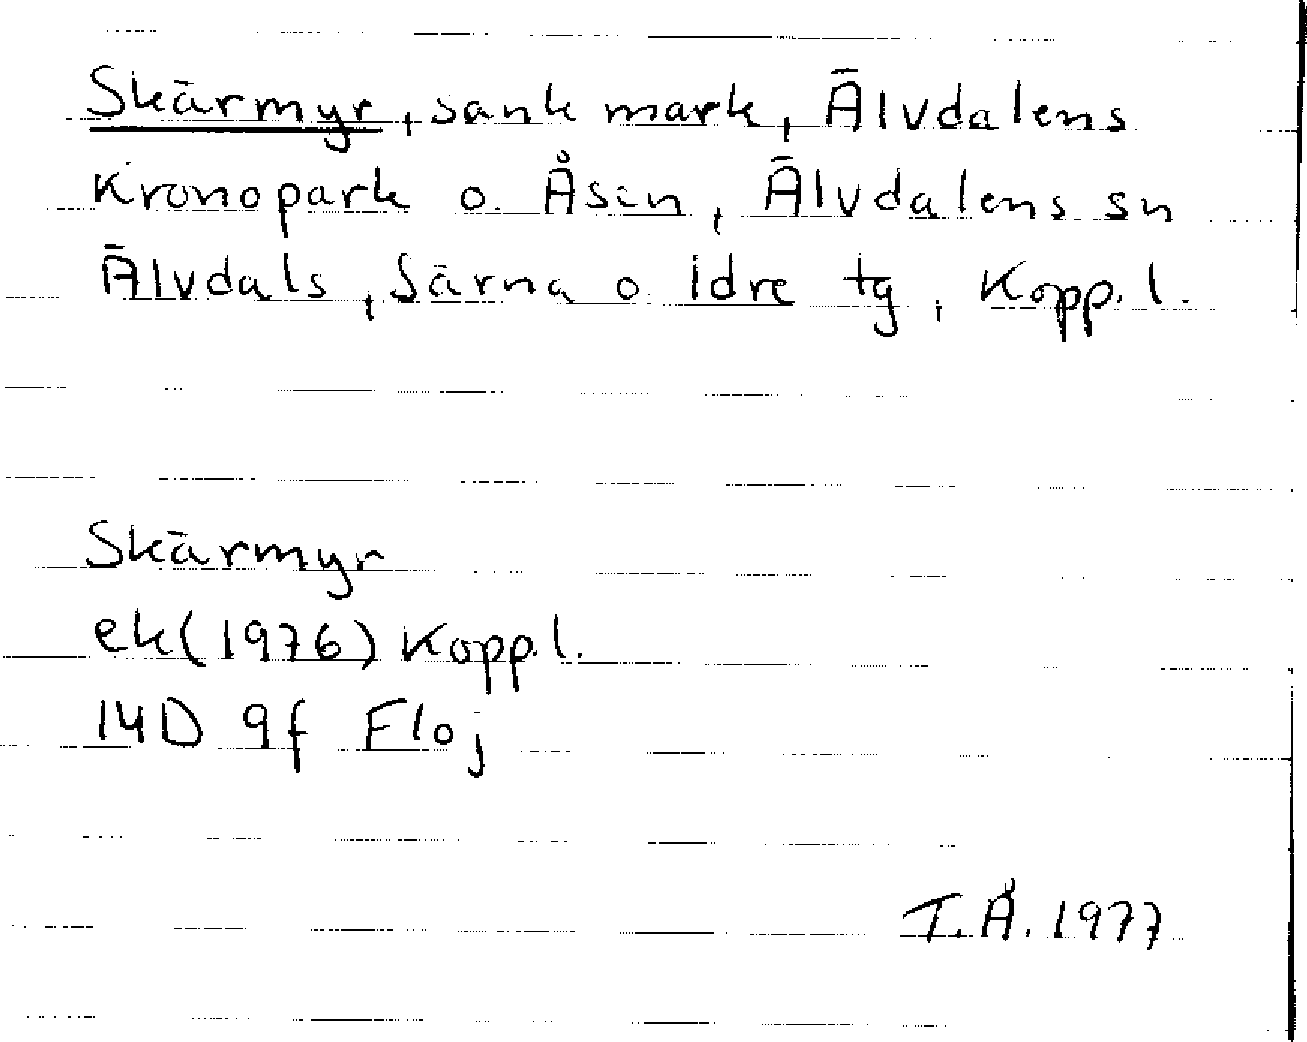 Skärmyr, sank mark, Älvdalens
Kronopark o. Åsen, Älvdalens sn
Älvdals, Särna o Idre tg, Kopp.l.
Skärmyr
ek(1976) Kopp.l.
14D 9f Floj
I.Å. 1977